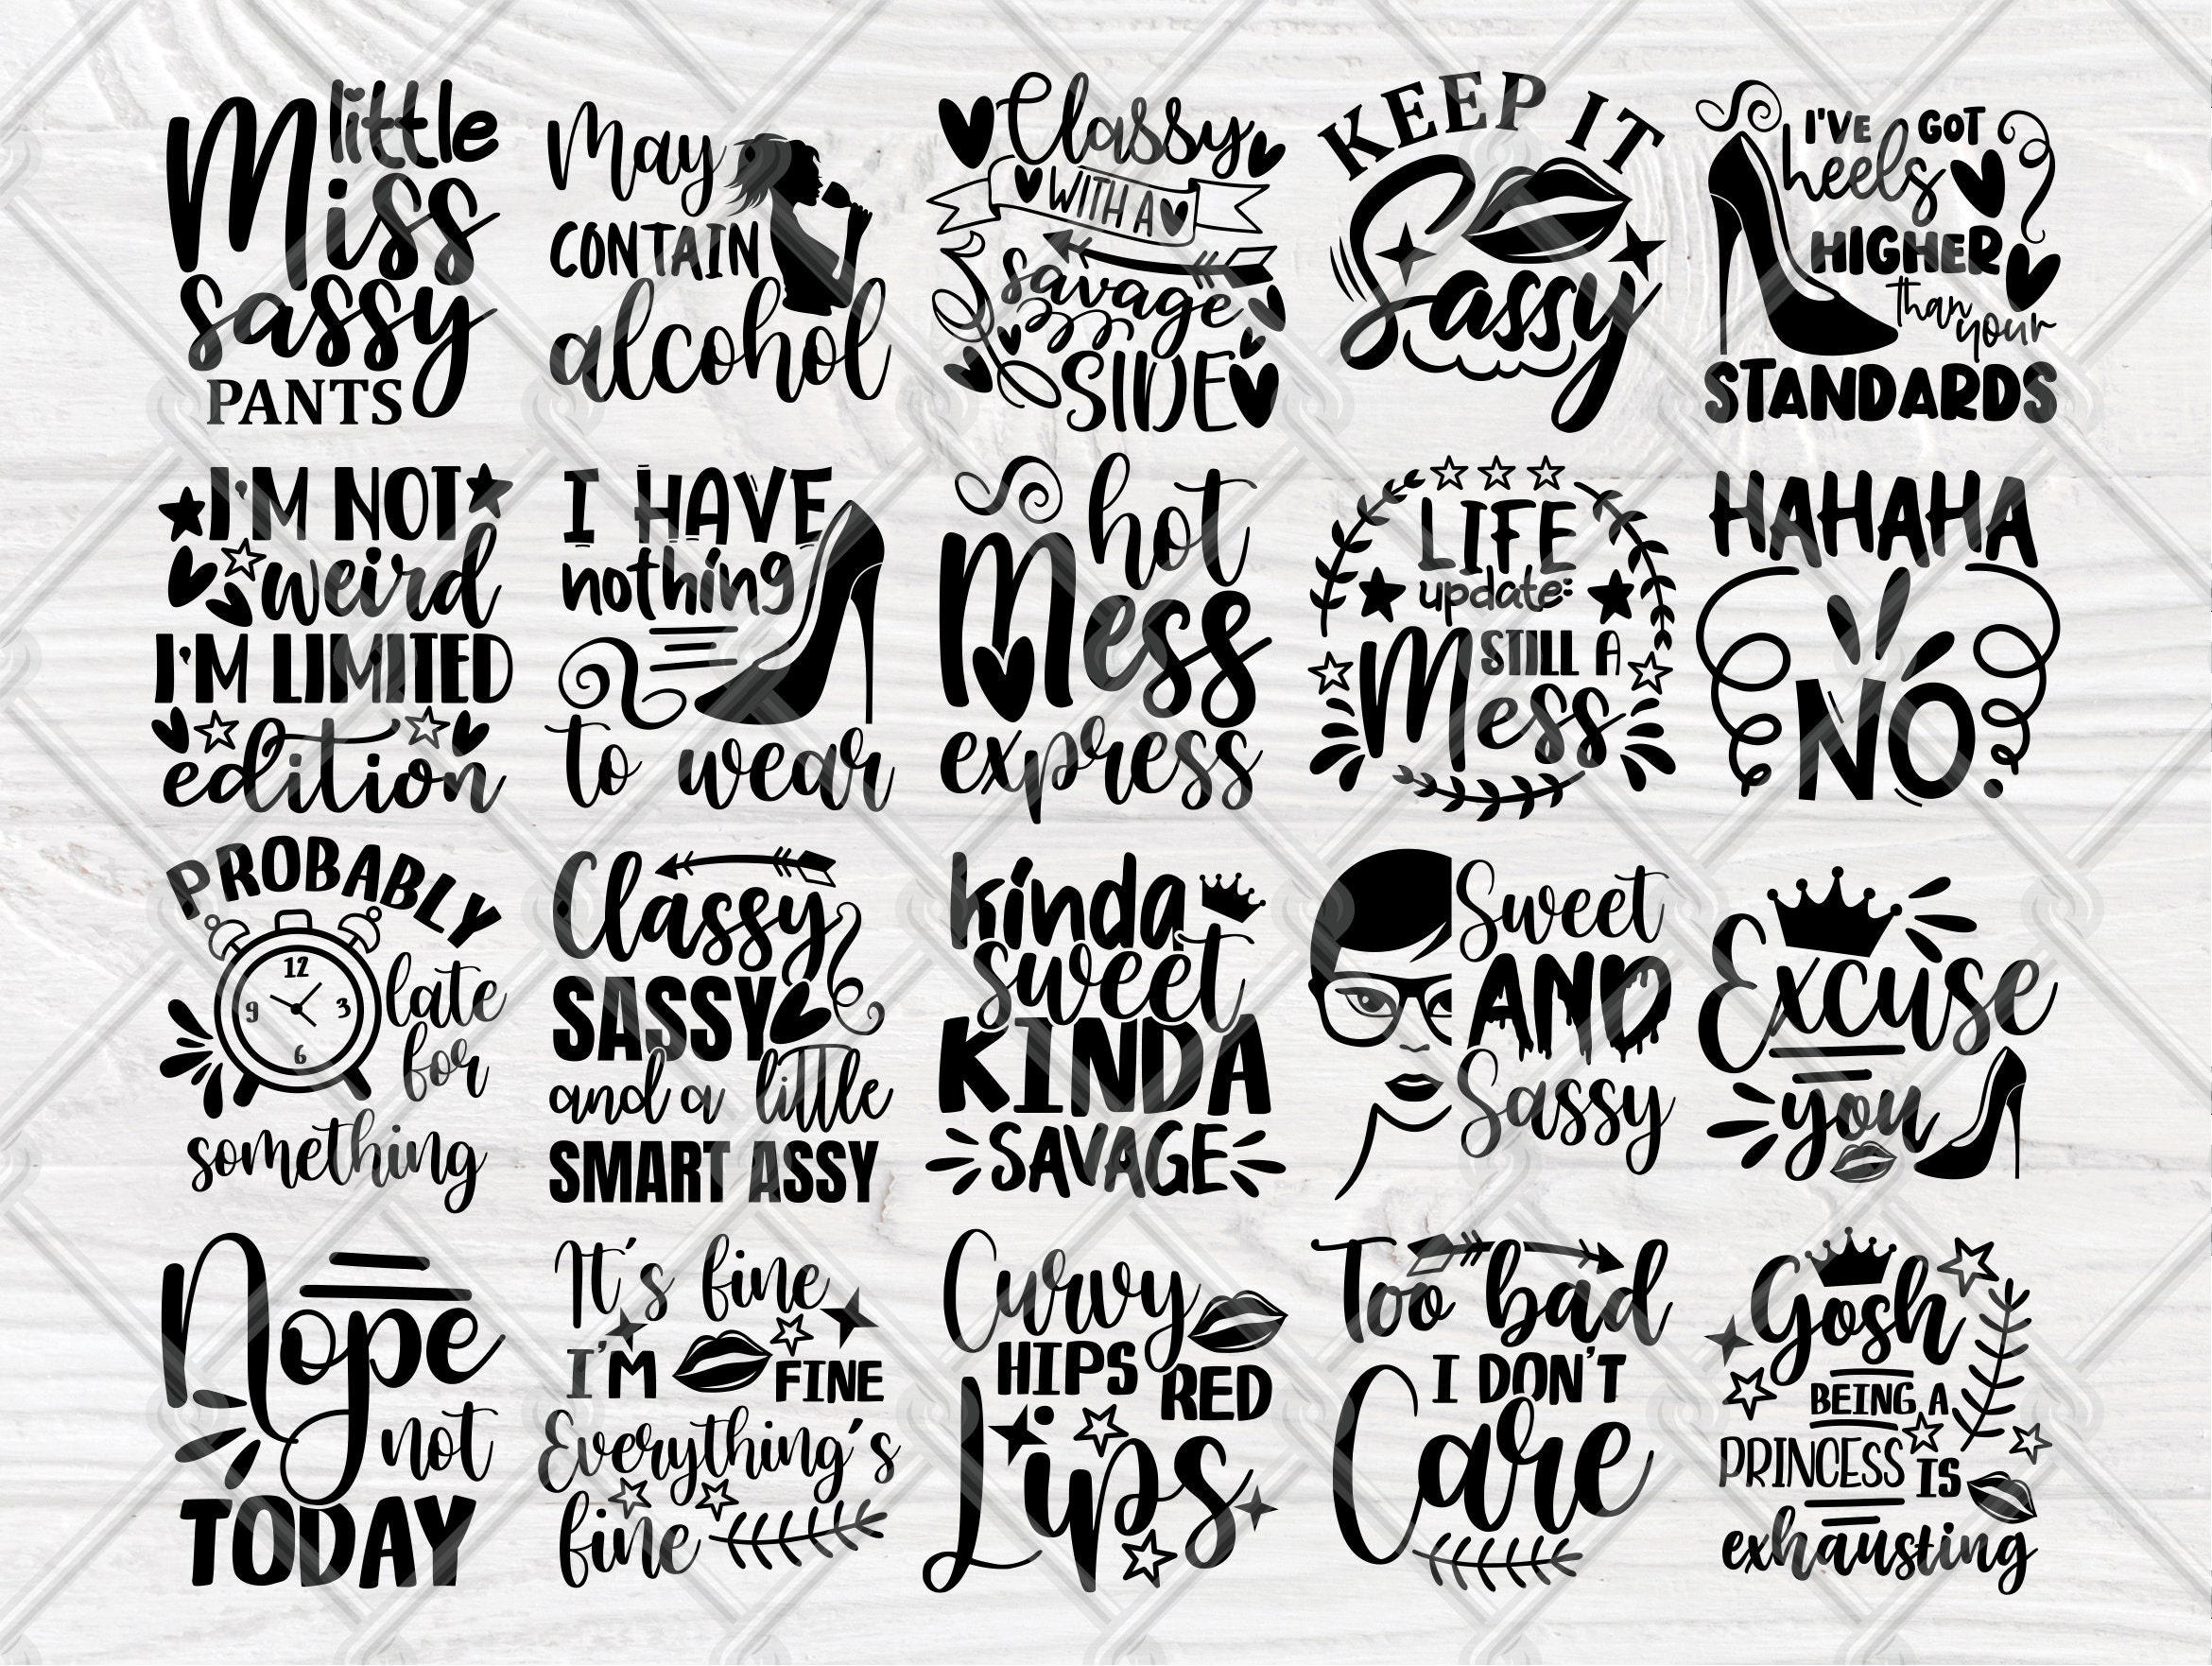 little
Miss
sassy
PANTS
May
CONTAIN
alcohol
Classy
WITH A
savage
SIDE
KEEP IT
Sassy
I'VE GOT
heels
HIGHER
than your
STANDARDS
I'M NOT
weird
I'M LIMITED
edition
I HAVE
nothing
to wear
hot
Mess
express
LIFE
update:
STILL A
Mess
HAHAHA
NO.
PROBABLY
12
9 3
6
late
for
something
Classy
SASSY
and a little
SMART ASSY
kinda
sweet
KINDA
SAVAGE
Sweet
AND
Sassy
Excuse
you
Nope
not
TODAY
It's fine
I'M FINE
Everything's
fine
Curvy
HIPS RED
Lips
Too bad
I DON'T
Care
Gosh
BEING A
PRINCESS IS
exhausting